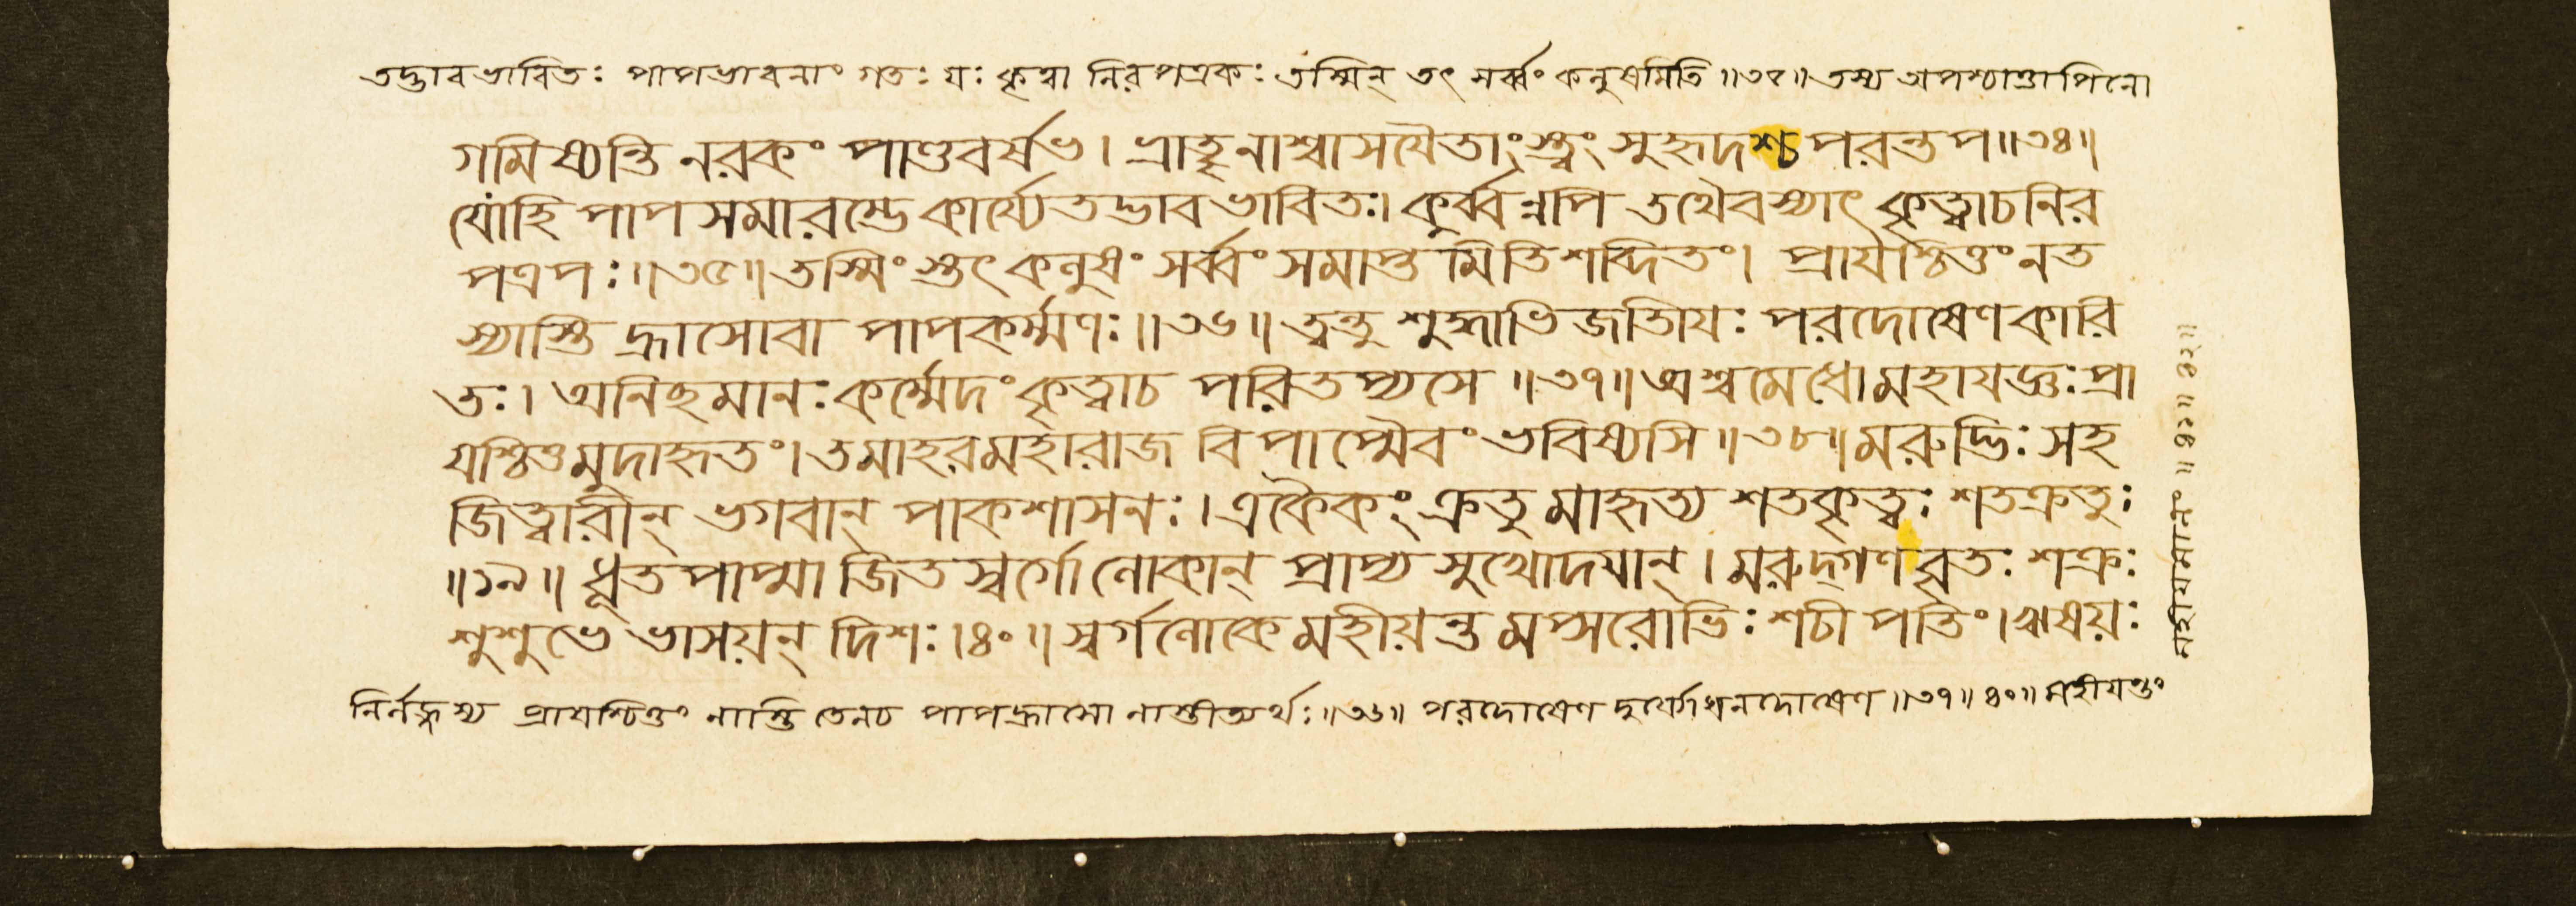 তদ্ভাবভাবিতঃ পাপভাবনাং গতঃ যঃ কৃত্বা নিরপত্রকঃ তস্মিন্ তৎ সর্ব্বং কলুষমিতি ॥৩৫॥ তস্য
গমিষ্যন্তি নরকং পাণ্ডবর্ষভ। ভ্রাতৃনাশ্বাসযৈতাংস্ত্বং সুহৃদশ্চ পরন্তপ॥৩৪॥
যোহি পাপসমারম্ভে কার্য্যে তদ্ভাবভাবিতঃ। কুর্ব্বন্নপি তথৈবস্যাৎ কৃত্বাচনির
পত্রপঃ॥৩৫॥ তস্মিংস্তৎ কলুষং সর্ব্বং সমাপ্তমিতিশব্দিতং। প্রাযশ্চিত্তং নত
স্যাস্তি হ্রাসোবা পাপকর্ম্মণঃ॥৩৬॥ ত্বন্তু শুক্লাভিজাতিযঃ পরদোষেণকারি
তঃ। অনিছমানঃ কর্ম্মেদং কৃত্বাচ পরিতপ্যসে ॥৩৭॥ অশ্বমেধো মহাযজ্ঞঃ প্রা
যশ্চিত্তমুদাহৃতং। তমাহরমহারাজ বিপাপ্মৈবং ভবিষ্যসি ॥৩৮॥ মরুদ্ভিঃ সহ
জিত্বারীন্ ভগবান্ পাকশাসনঃ। একৈকং ক্রতুমাহৃত্য শতকৃত্বঃ শতক্রতুঃ
॥৩৯॥ ধূতপাপ্মা জিতস্বর্গো লোকান্ প্রাপ্য সুখোদযান্। মরুদ্গণবৃতঃ শক্রঃ
শুশুভে ভাসয়ন্ দিশঃ।৪০॥ স্বর্গলোকে মহীয়ন্তমপ্সরোভিঃ শচীপতিং। ঋষয়ঃ
প্রাযশ্চিত্তং নাস্তি তেনচ পাপহ্রাসো নাস্তীত্যর্থঃ ॥৩৬॥ পরদোষেণ দুর্যোধনদোষেণ ॥৩৭॥ ৪০॥ মহীযন্তং
মহীযমানং ॥ ৪১॥ ৪২॥